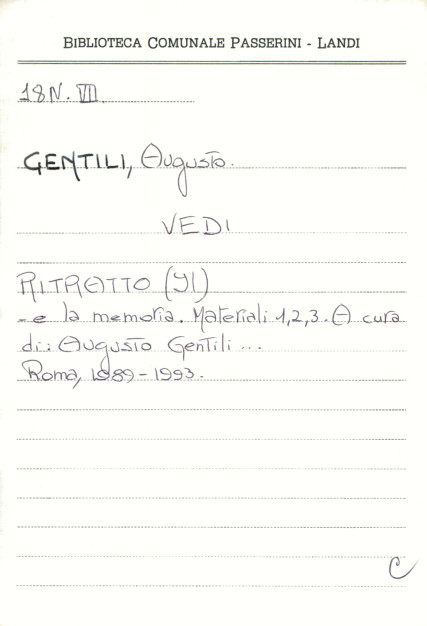 BIBLIOTECA COMUNALE PASSERINI - LANDI
18N. VII
GENTILI, Augusto.
VEDI
RITRATTO (Il)
-e la memoria. Materiali 1,2,3. A cura
di: Augusto Gentili ...
Roma, 1989-1993.
C